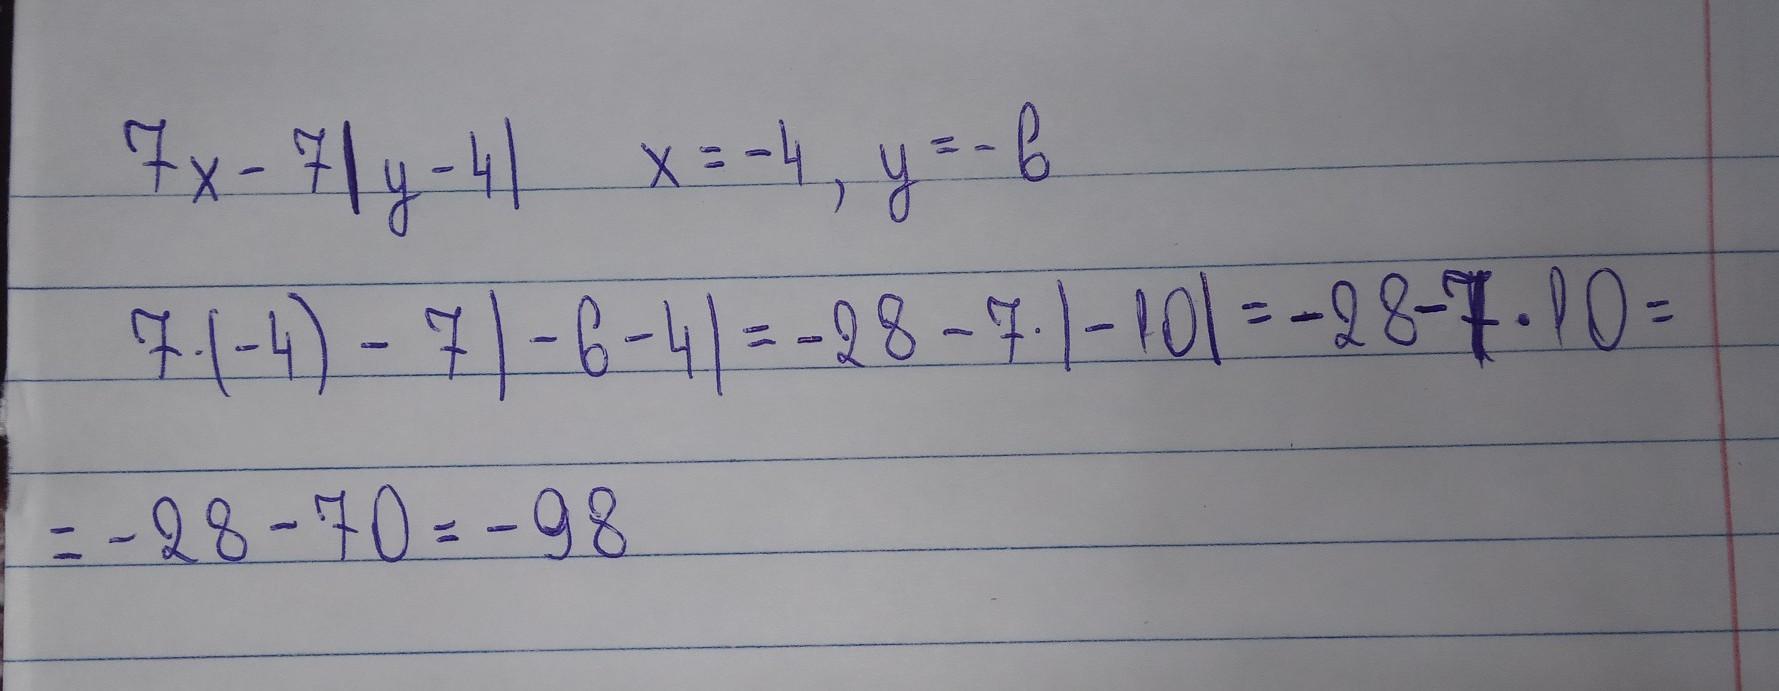 7x - 7|y - 4| x = -4, y = -6
7·(-4) - 7|-6-4| = -28 - 7·|-10| = -28-7·10 =
= -28 - 70 = -98